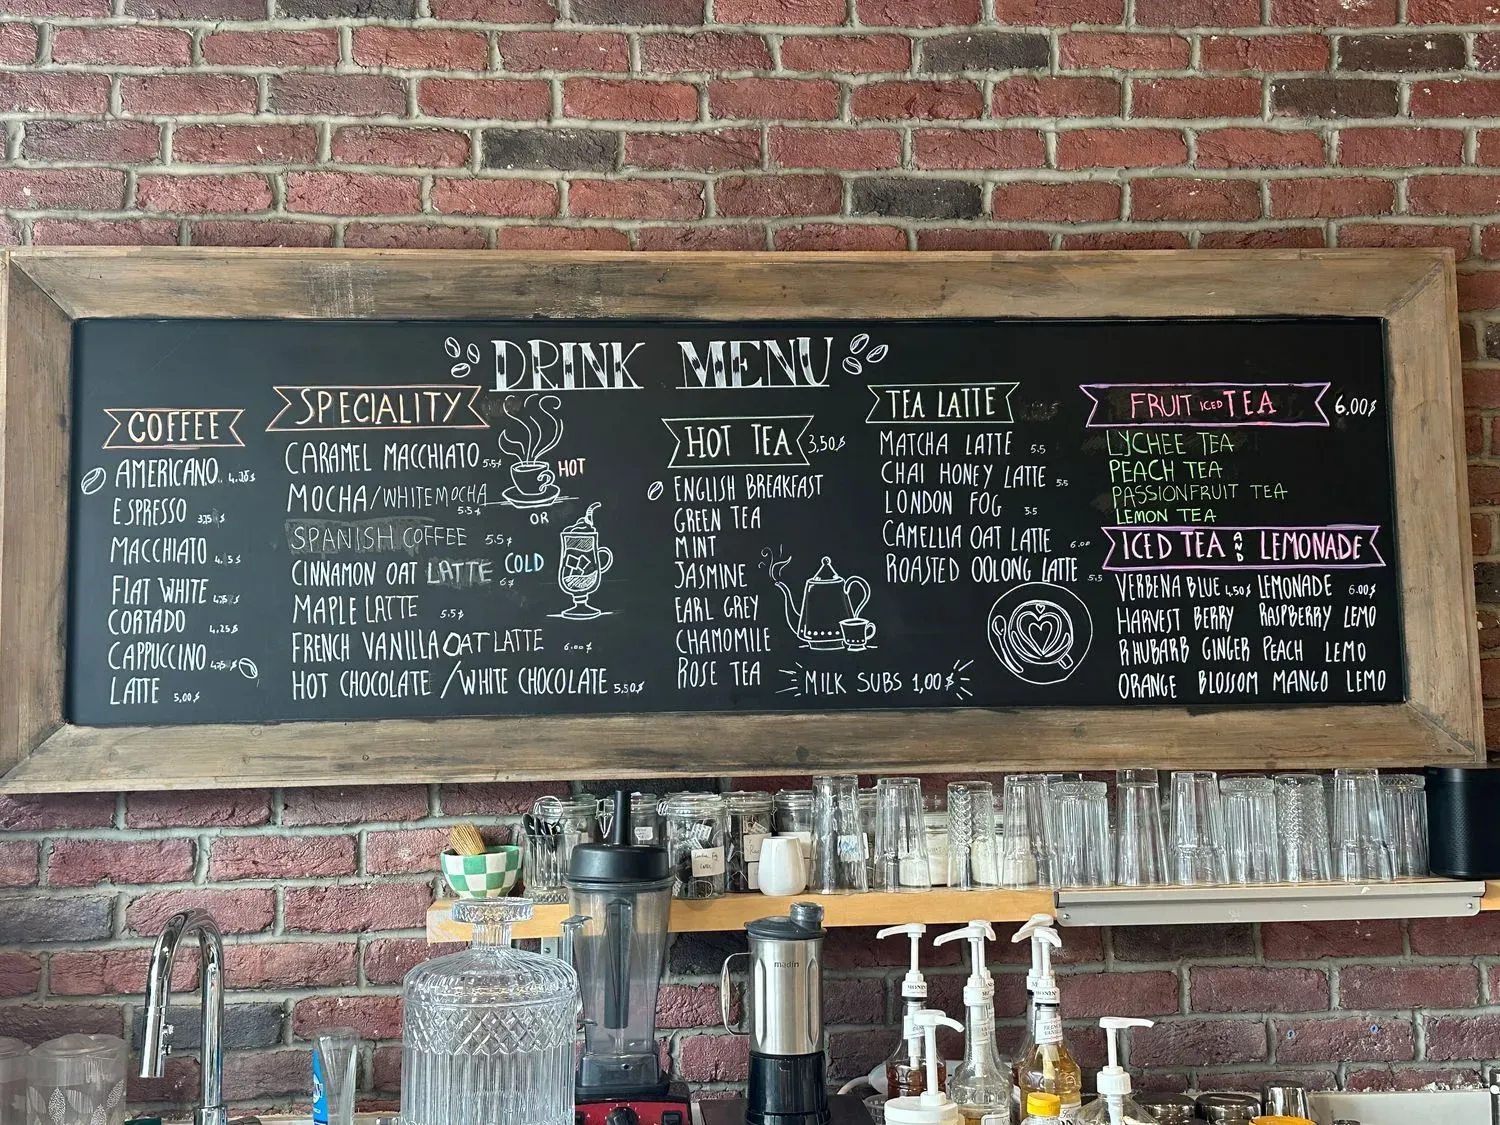 DRINK MENU
COFFEE
AMERICANO
ESPRESSO
MACCHIATO
FLAT WHITE
CORTADO 4.25$
CAPPUCCINO
LATTE 5,00$
SPECIALITY
CARAMEL MACCHIATO 5.5$
MOCHA/WHITE MOCHA 5.5$
SPANISH COFFEE 5.5$
CINNAMON OAT LATTE 6$
MAPLE LATTE 5.5$
FRENCH VANILLA OAT LATTE 6.00$
HOT CHOCOLATE /WHITE CHOCOLATE 5.50$
HOT
OR
COLD
HOT TEA 3,50$
ENGLISH BREAKFAST
GREEN TEA
MINT
JASMINE
EARL GREY
CHAMOMILE
ROSE TEA
MILK SUBS 1,00$
TEA LATTE
MATCHA LATTE 5.5
CHAI HONEY LATTE 5.5
LONDON FOG 5.5
CAMELLIA OAT LATTE 6.00
ROASTED OOLONG LATTE 5.5
FRUIT ICED TEA 6,00$
LYCHEE TEA
PEACH TEA
PASSIONFRUIT TEA
LEMON TEA
ICED TEA AND LEMONADE
VERBENA BLUE 4,50$ LEMONADE 6.00$
HARVEST BERRY RASPBERRY LEMO
RHUBARB GINGER PEACH LEMO
ORANGE BLOSSOM MANGO LEMO
madin
MONIN